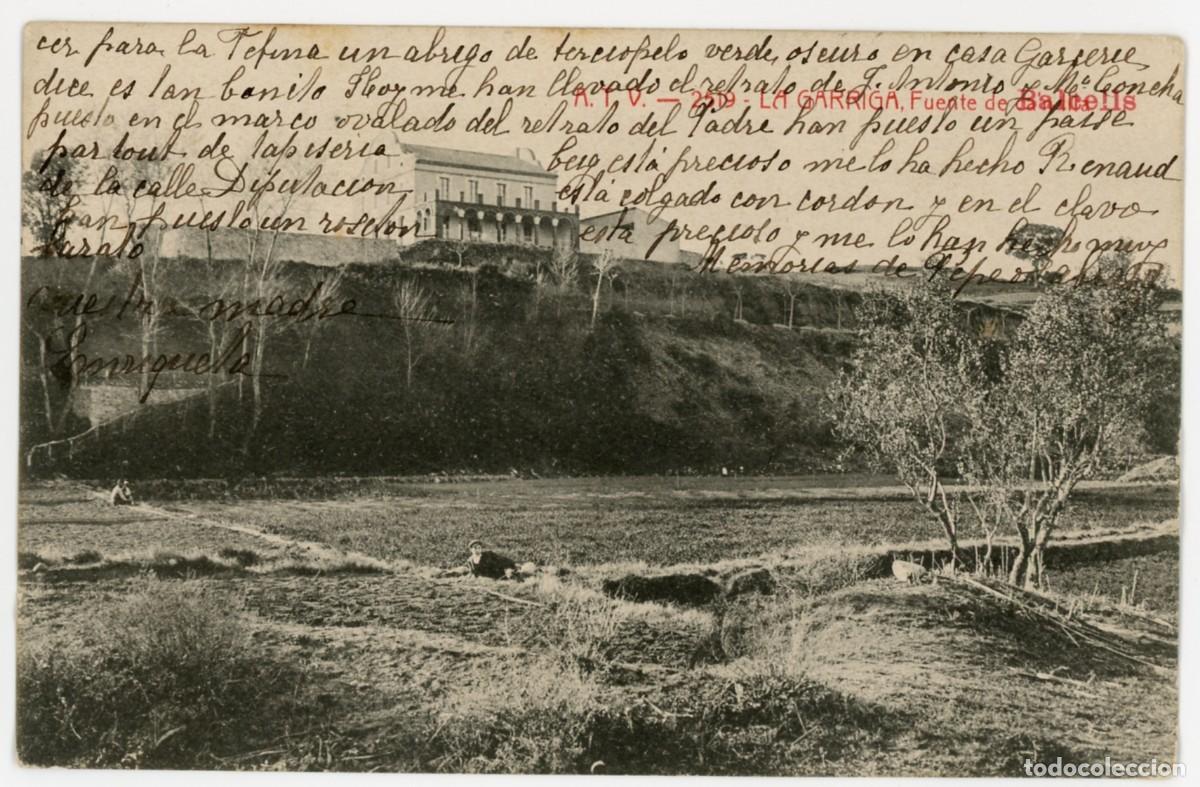 cer para la Tefina un abrigo de terciopelo verde oscuro en casa Garcerie
dice es tan bonito Hoy me han llevado el retrato de J. Antonio y Mª Concha
A. T. V. — 2519 - LA GARRIGA, Fuente de Balcells
puesto en el marco ovalado del retrato del Padre han puesto un passe
partout de tapiseria beig está precioso me lo ha hecho Renaud
de la calle Diputacion está colgado con cordon y en el clavo
han puesto un roseton está precioso y me lo han hecho muy
barato Memorias de
vuestra madre
Enriqueta
todocoleccion